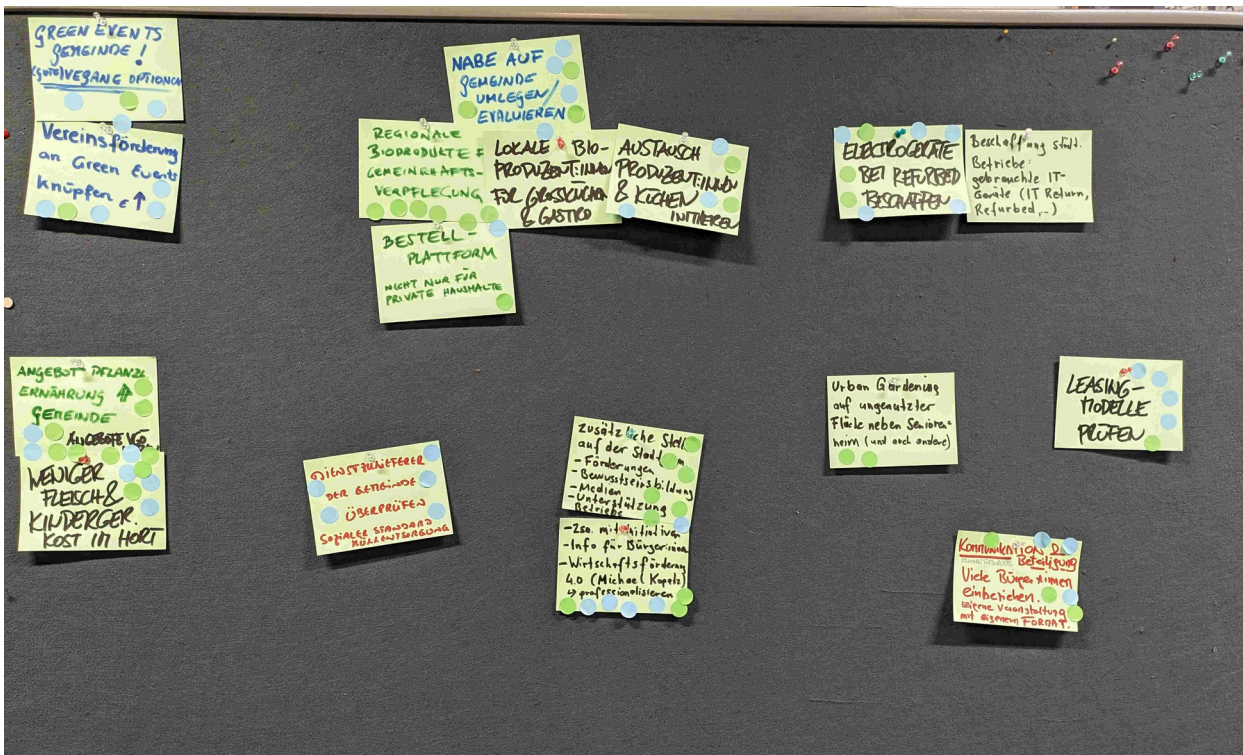 GREEN EVENTS
GEMEINDE!
(gute) VEGANE OPTIONEN
Vereinsförderung
an Green Events
knüpfen € ↑
NABE AUF
GEMEINDE
UMLEGEN/
EVALUIEREN
REGIONALE
BIOPRODUKTE
GEMEINSCHAFTS-
VERPFLEGUNG
LOKALE BIO-
PRODUZENT:INNEN
FÜR GROSSKÜCHEN
& GASTRO
AUSTAUSCH
PRODUZENT:INNEN
& KÜCHEN
INITIIEREN
BESTELL-
PLATTFORM
NICHT NUR FÜR
PRIVATE HAUSHALTE
ELECTROGERÄTE
BEI REFURBED
BESCHAFFEN
Beschaffung städt.
Betriebe:
gebrauchte IT-
Geräte (IT Return,
Refurbed,..)
ANGEBOT PFLANZL
ERNÄHRUNG ↑
GEMEINDE
ANGEBOTE
WENIGER
FLEISCH &
KINDERGER.
KOST IM HORT
DIENSTZULIEFERER
DER GEMEINDE
ÜBERPRÜFEN
SOZIALER STANDARD
MÜLLENTSORGUNG
Zusätzliche Stelle
auf der Stadt
- Förderungen
- Bewusstseinsbildung
- Medien
- Unterstützung
Betriebe
- Zsa. mit Initiativen
- Info für Bürger:innen
- Wirtschaftsförderung
4.0 (Michael Kopatz)
↳ professionalisieren
Urban Gardening
auf ungenutzter
Fläche neben Senioren=
heim (und auch andere)
LEASING-
MODELLE
PRÜFEN
KOMMUNIKATION &
Beteiligung
Viele Bürger*innen
einbeziehen.
eigene Veranstaltung
mit eigenem FORMAT.